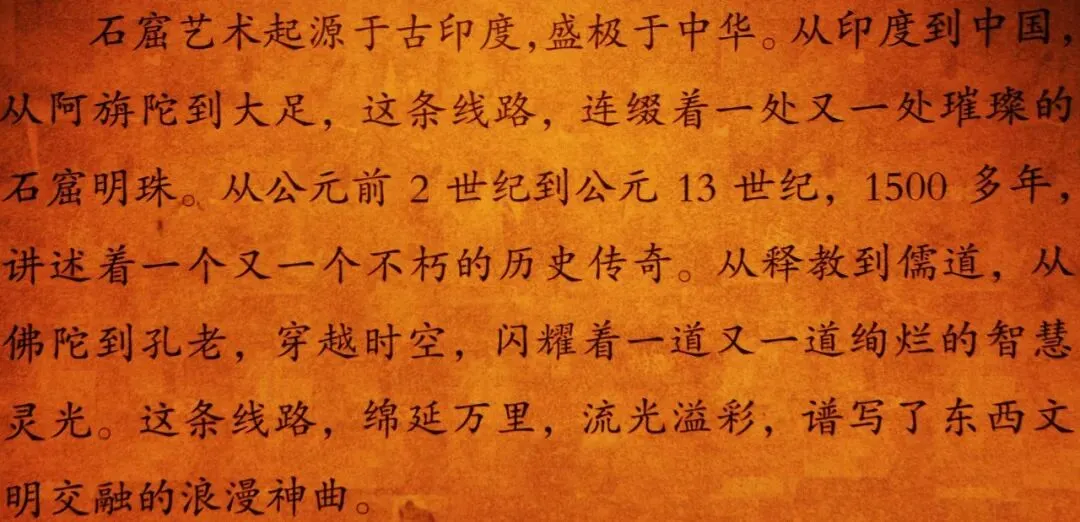 石窟艺术起源于古印度,盛极于中华。从印度到中国,
从阿旃陀到大足，这条线路，连缀着一处又一处璀璨的
石窟明珠。从公元前 2 世纪到公元 13 世纪，1500 多年，
讲述着一个又一个不朽的历史传奇。从释教到儒道，从
佛陀到孔老，穿越时空，闪耀着一道又一道绚烂的智慧
灵光。这条线路，绵延万里，流光溢彩，谱写了东西文
明交融的浪漫神曲。